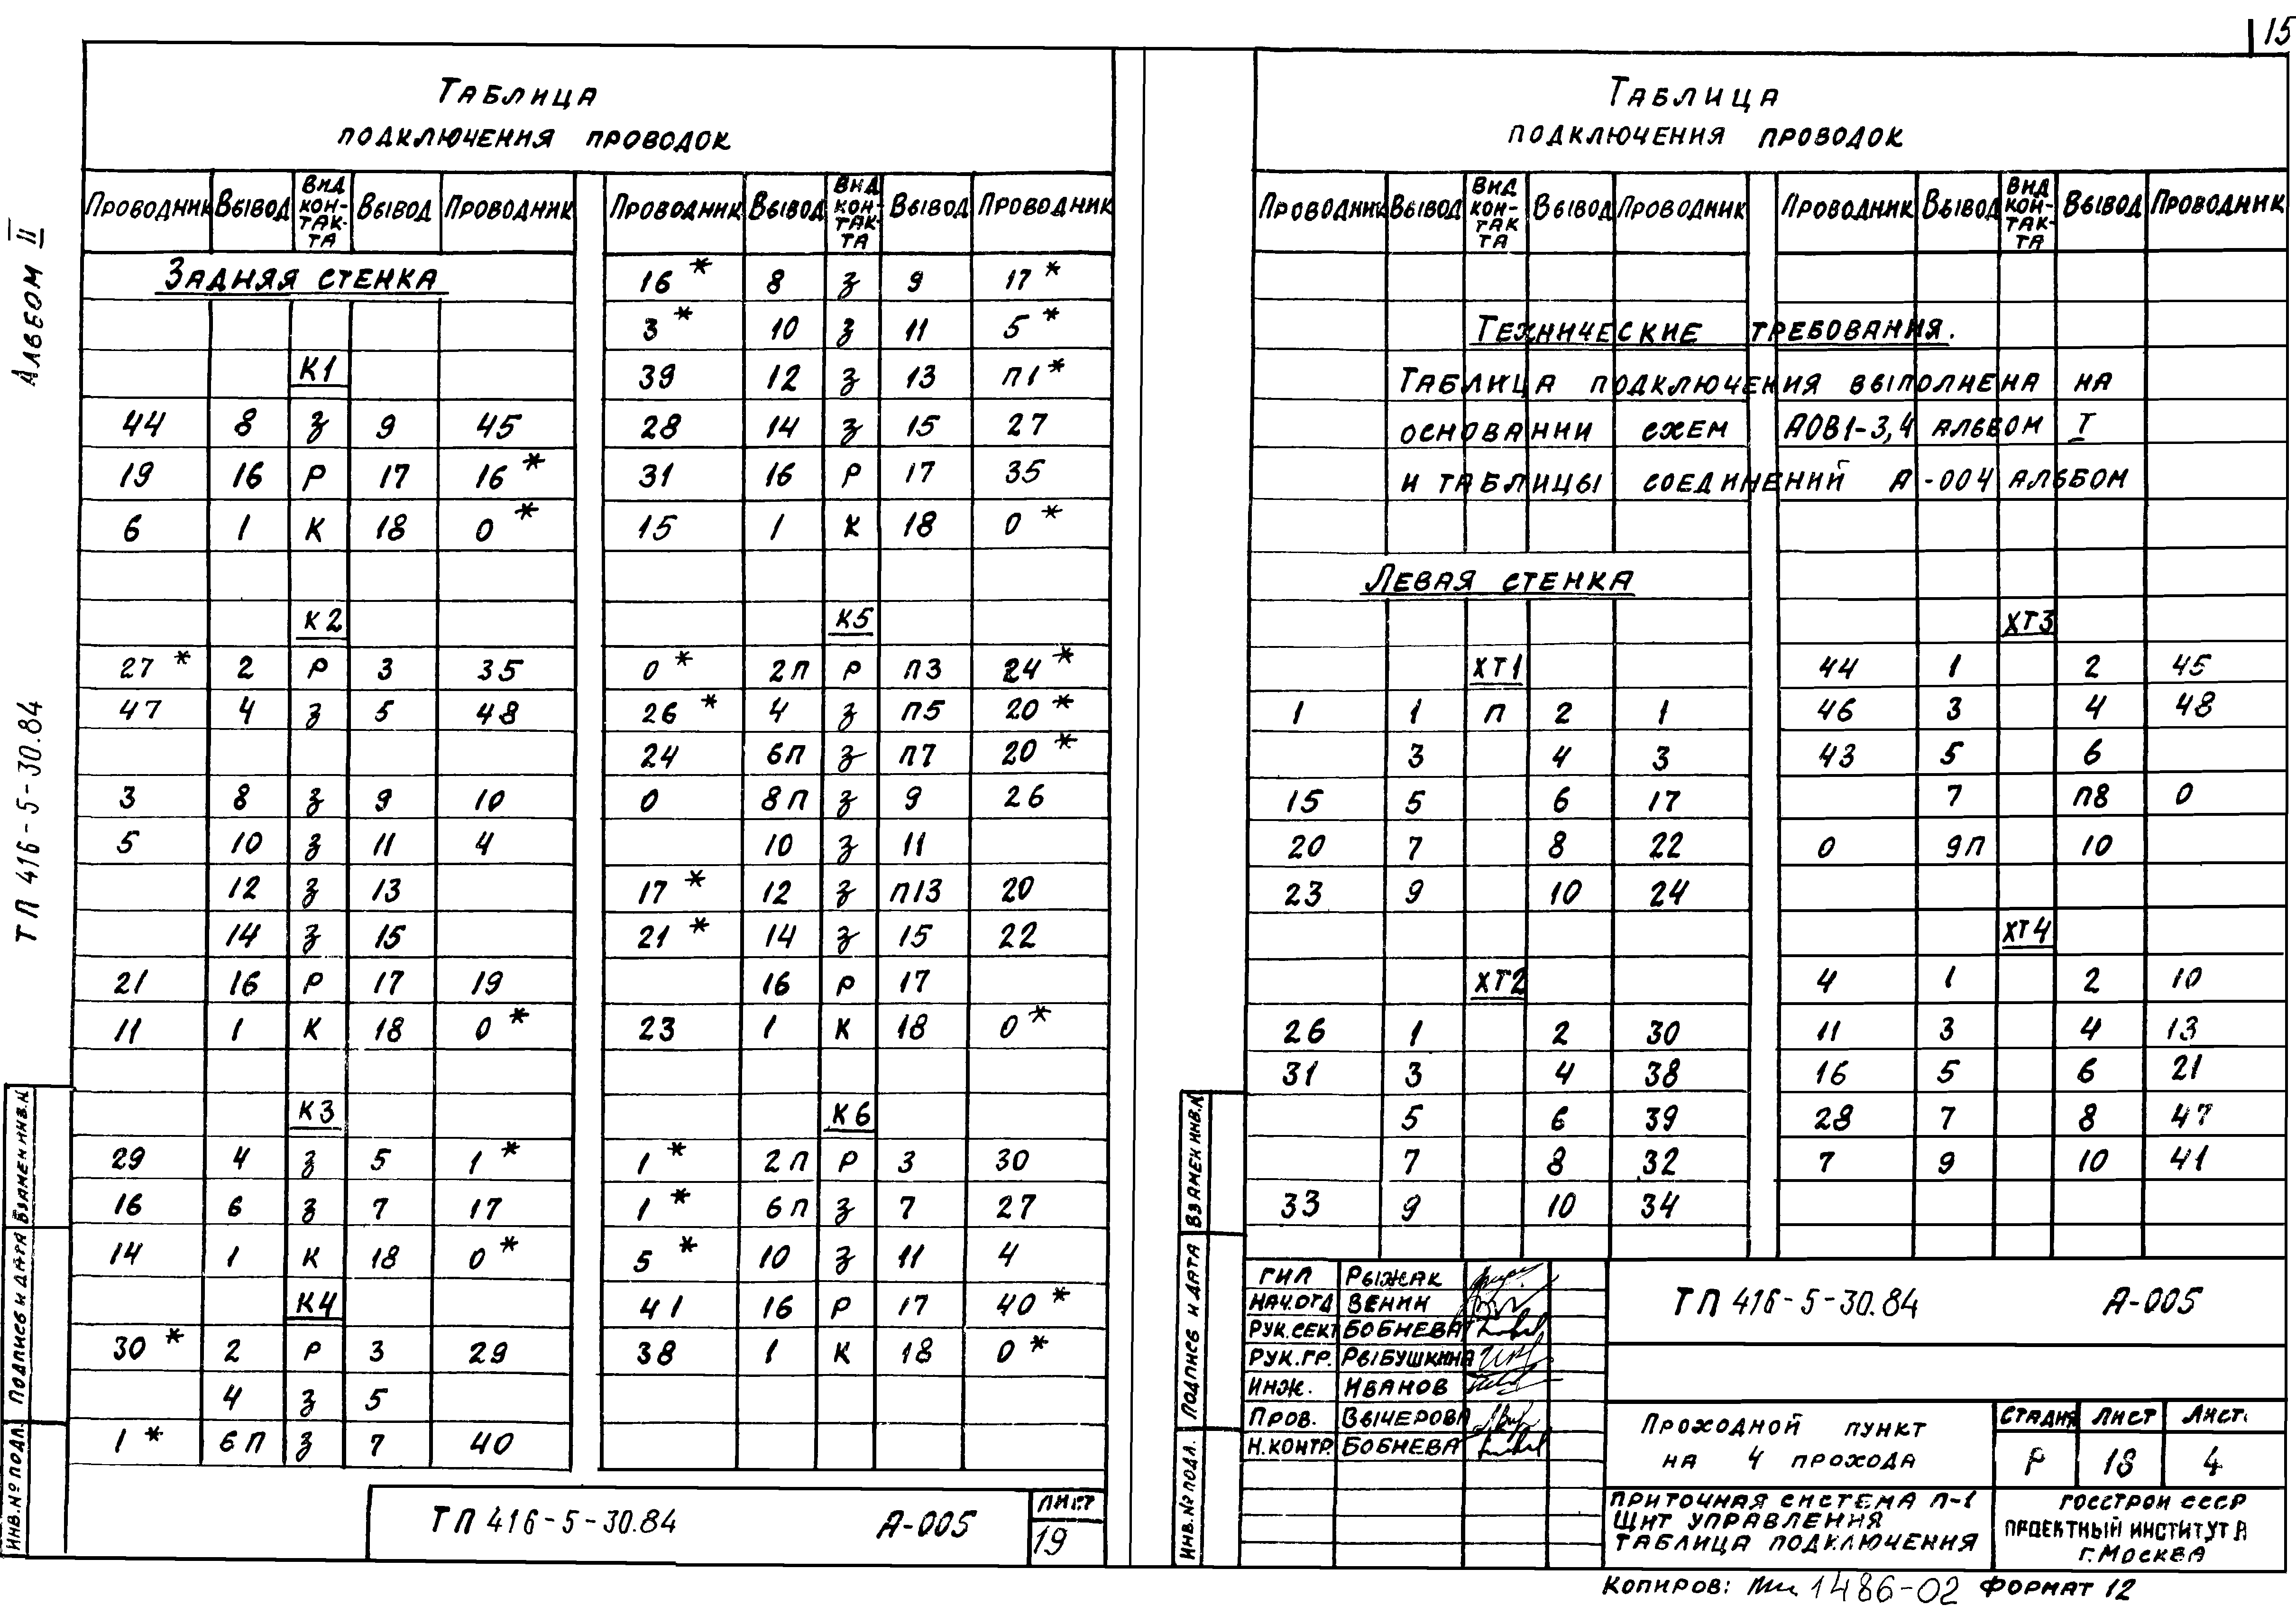 15
Альбом II
ТП 416-5-30.84
Взамен инв.№
Подпись и дата
Инв.№ подл.
Таблица
подключения проводок
Проводник Вывод Вид контакта Вывод Проводник
Задняя стенка
К1
44 8 з 9 45
19 16 Р 17 16*
6 1 К 18 0*
К2
27* 2 Р 3 35
47 4 з 5 48
3 8 з 9 10
5 10 з 11 4
12 з 13
14 з 15
21 16 Р 17 19
11 1 К 18 0*
К3
29 4 з 5 1*
16 6 з 7 17
14 1 К 18 0*
К4
30* 2 Р 3 29
4 з 5
1* 6П з 7 40
Проводник Вывод Вид контакта Вывод Проводник
16* 8 з 9 17*
3* 10 з 11 5*
39 12 з 13 П1*
28 14 з 15 27
31 16 Р 17 35
15 1 К 18 0*
К5
0* 2П Р П3 24*
26* 4 з П5 20*
24 6П з П7 20*
0 8П з 9 26
10 з 11
17* 12 з П13 20
21* 14 з 15 22
16 Р 17
23 1 К 18 0*
К6
1* 2П Р 3 30
1* 6П з 7 27
5* 10 з 11 4
41 16 Р 17 40*
38 1 К 18 0*
ТП 416-5-30.84 А-005
Лист
19
Таблица
подключения проводок
Проводник Вывод Вид контакта Вывод Проводник
Проводник Вывод Вид контакта Вывод Проводник
Технические требования.
Таблица подключения выполнена на
основании схем АОВ1-3,4 альбом I
и таблицы соединений А-004 альбом
Левая стенка
ХТ1
1 1 П 2 1
3 4 3
15 5 6 17
20 7 8 22
23 9 10 24
ХТ2
26 1 2 30
31 3 4 38
5 6 39
7 8 32
33 9 10 34
ХТ3
44 1 2 45
46 3 4 48
43 5 6
7 П8 0
0 9П 10
ХТ4
4 1 2 10
11 3 4 13
16 5 6 21
28 7 8 47
7 9 10 41
Взамен инв.№
Подпись и дата
Инв.№ подл.
ГИП Рыжак
Нач.отд Венин
Рук.сект Бобнева
Рук.гр. Рыбушкина
Инж. Иванов
Пров. Вычерова
Н.контр. Бобнева
ТП 416-5-30.84 А-005
Проходной пункт
на 4 прохода
Стадия Лист Лист.
Р 18 4
Приточная система П-1
Щит управления
Таблица подключения
Госстрой СССР
Проектный институт
г.Москва
Копиров: 1486-02 Формат 12